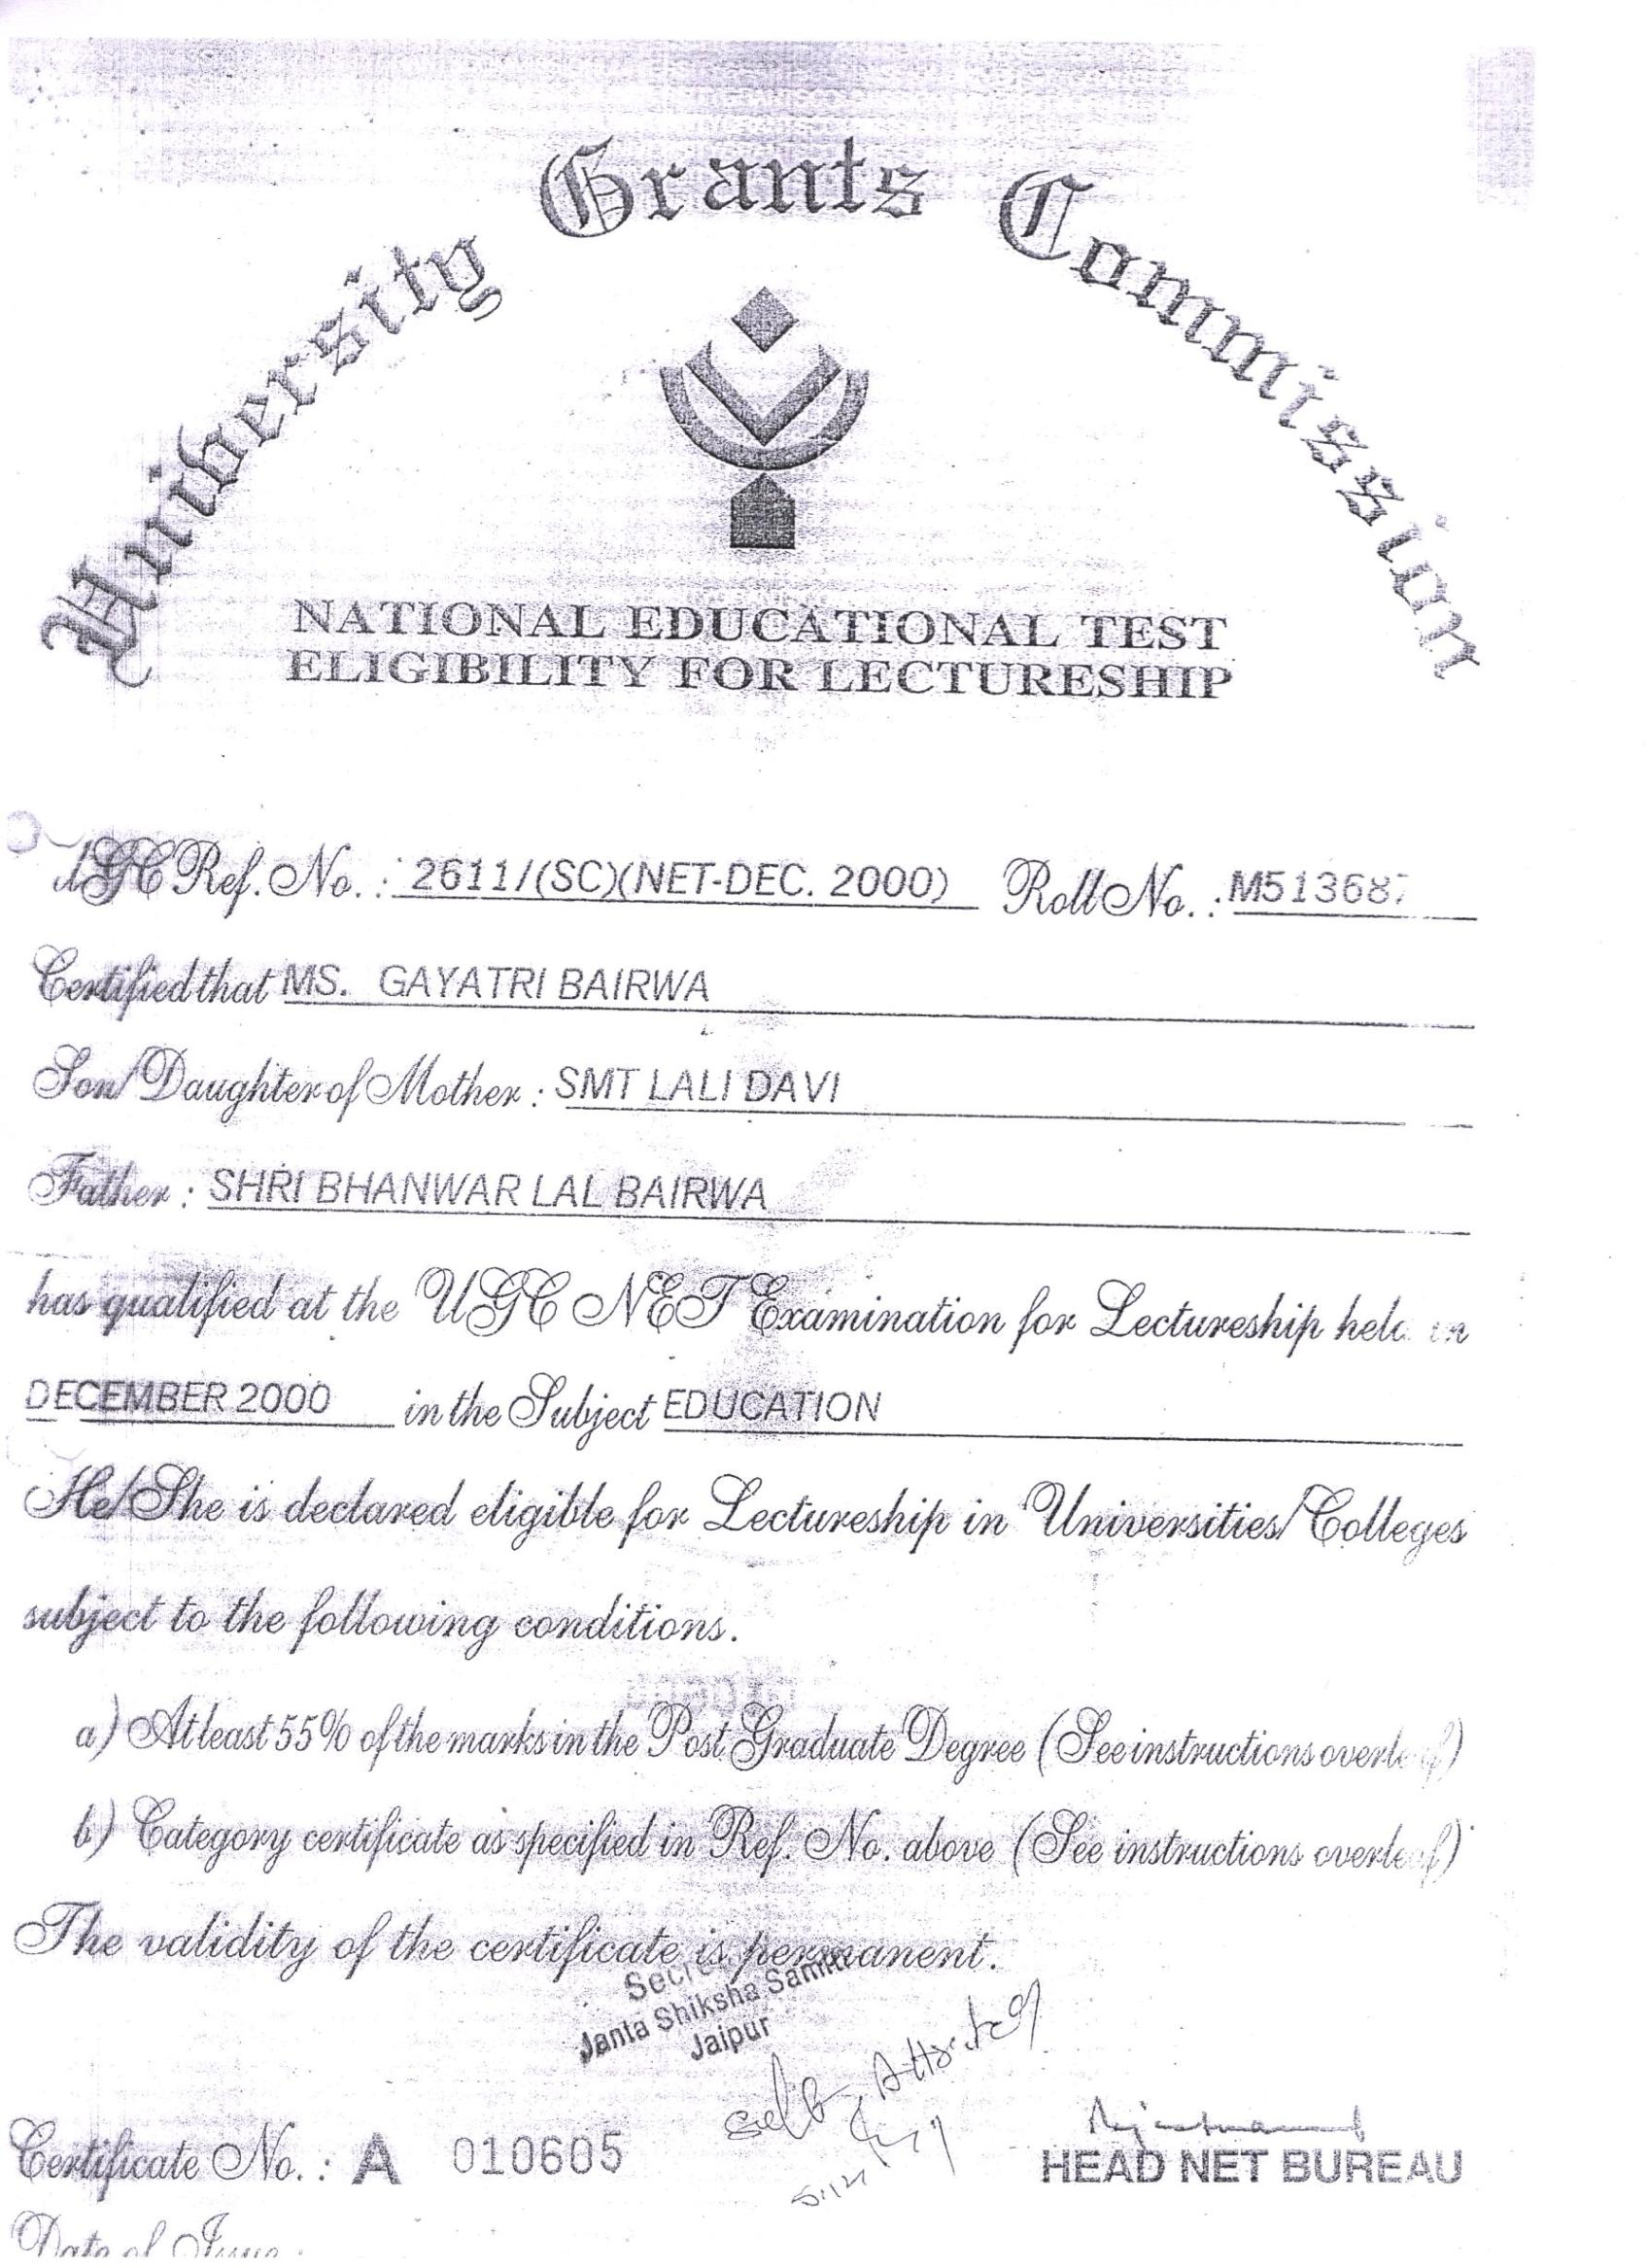 University Grants Commission
NATIONAL EDUCATIONAL TEST
ELIGIBILITY FOR LECTURESHIP
UGC Ref. No. : 2611/(SC)(NET-DEC. 2000) Roll No. : M513687
Certified that MS. GAYATRI BAIRWA
Son/Daughter of Mother : SMT LALI DAVI
Father : SHRI BHANWAR LAL BAIRWA
has qualified at the UGC NET Examination for Lectureship held in
DECEMBER 2000 in the Subject EDUCATION
He/She is declared eligible for Lectureship in Universities/Colleges
subject to the following conditions.
a) Atleast 55% of the marks in the Post Graduate Degree (See instructions overleaf)
b) Category certificate as specified in Ref. No. above (See instructions overleaf)
The validity of the certificate is permanent.
Janta Shiksha Samiti
Jaipur
Self Attested
HEAD NET BUREAU
Certificate No. : A 010605
Date of Issue :